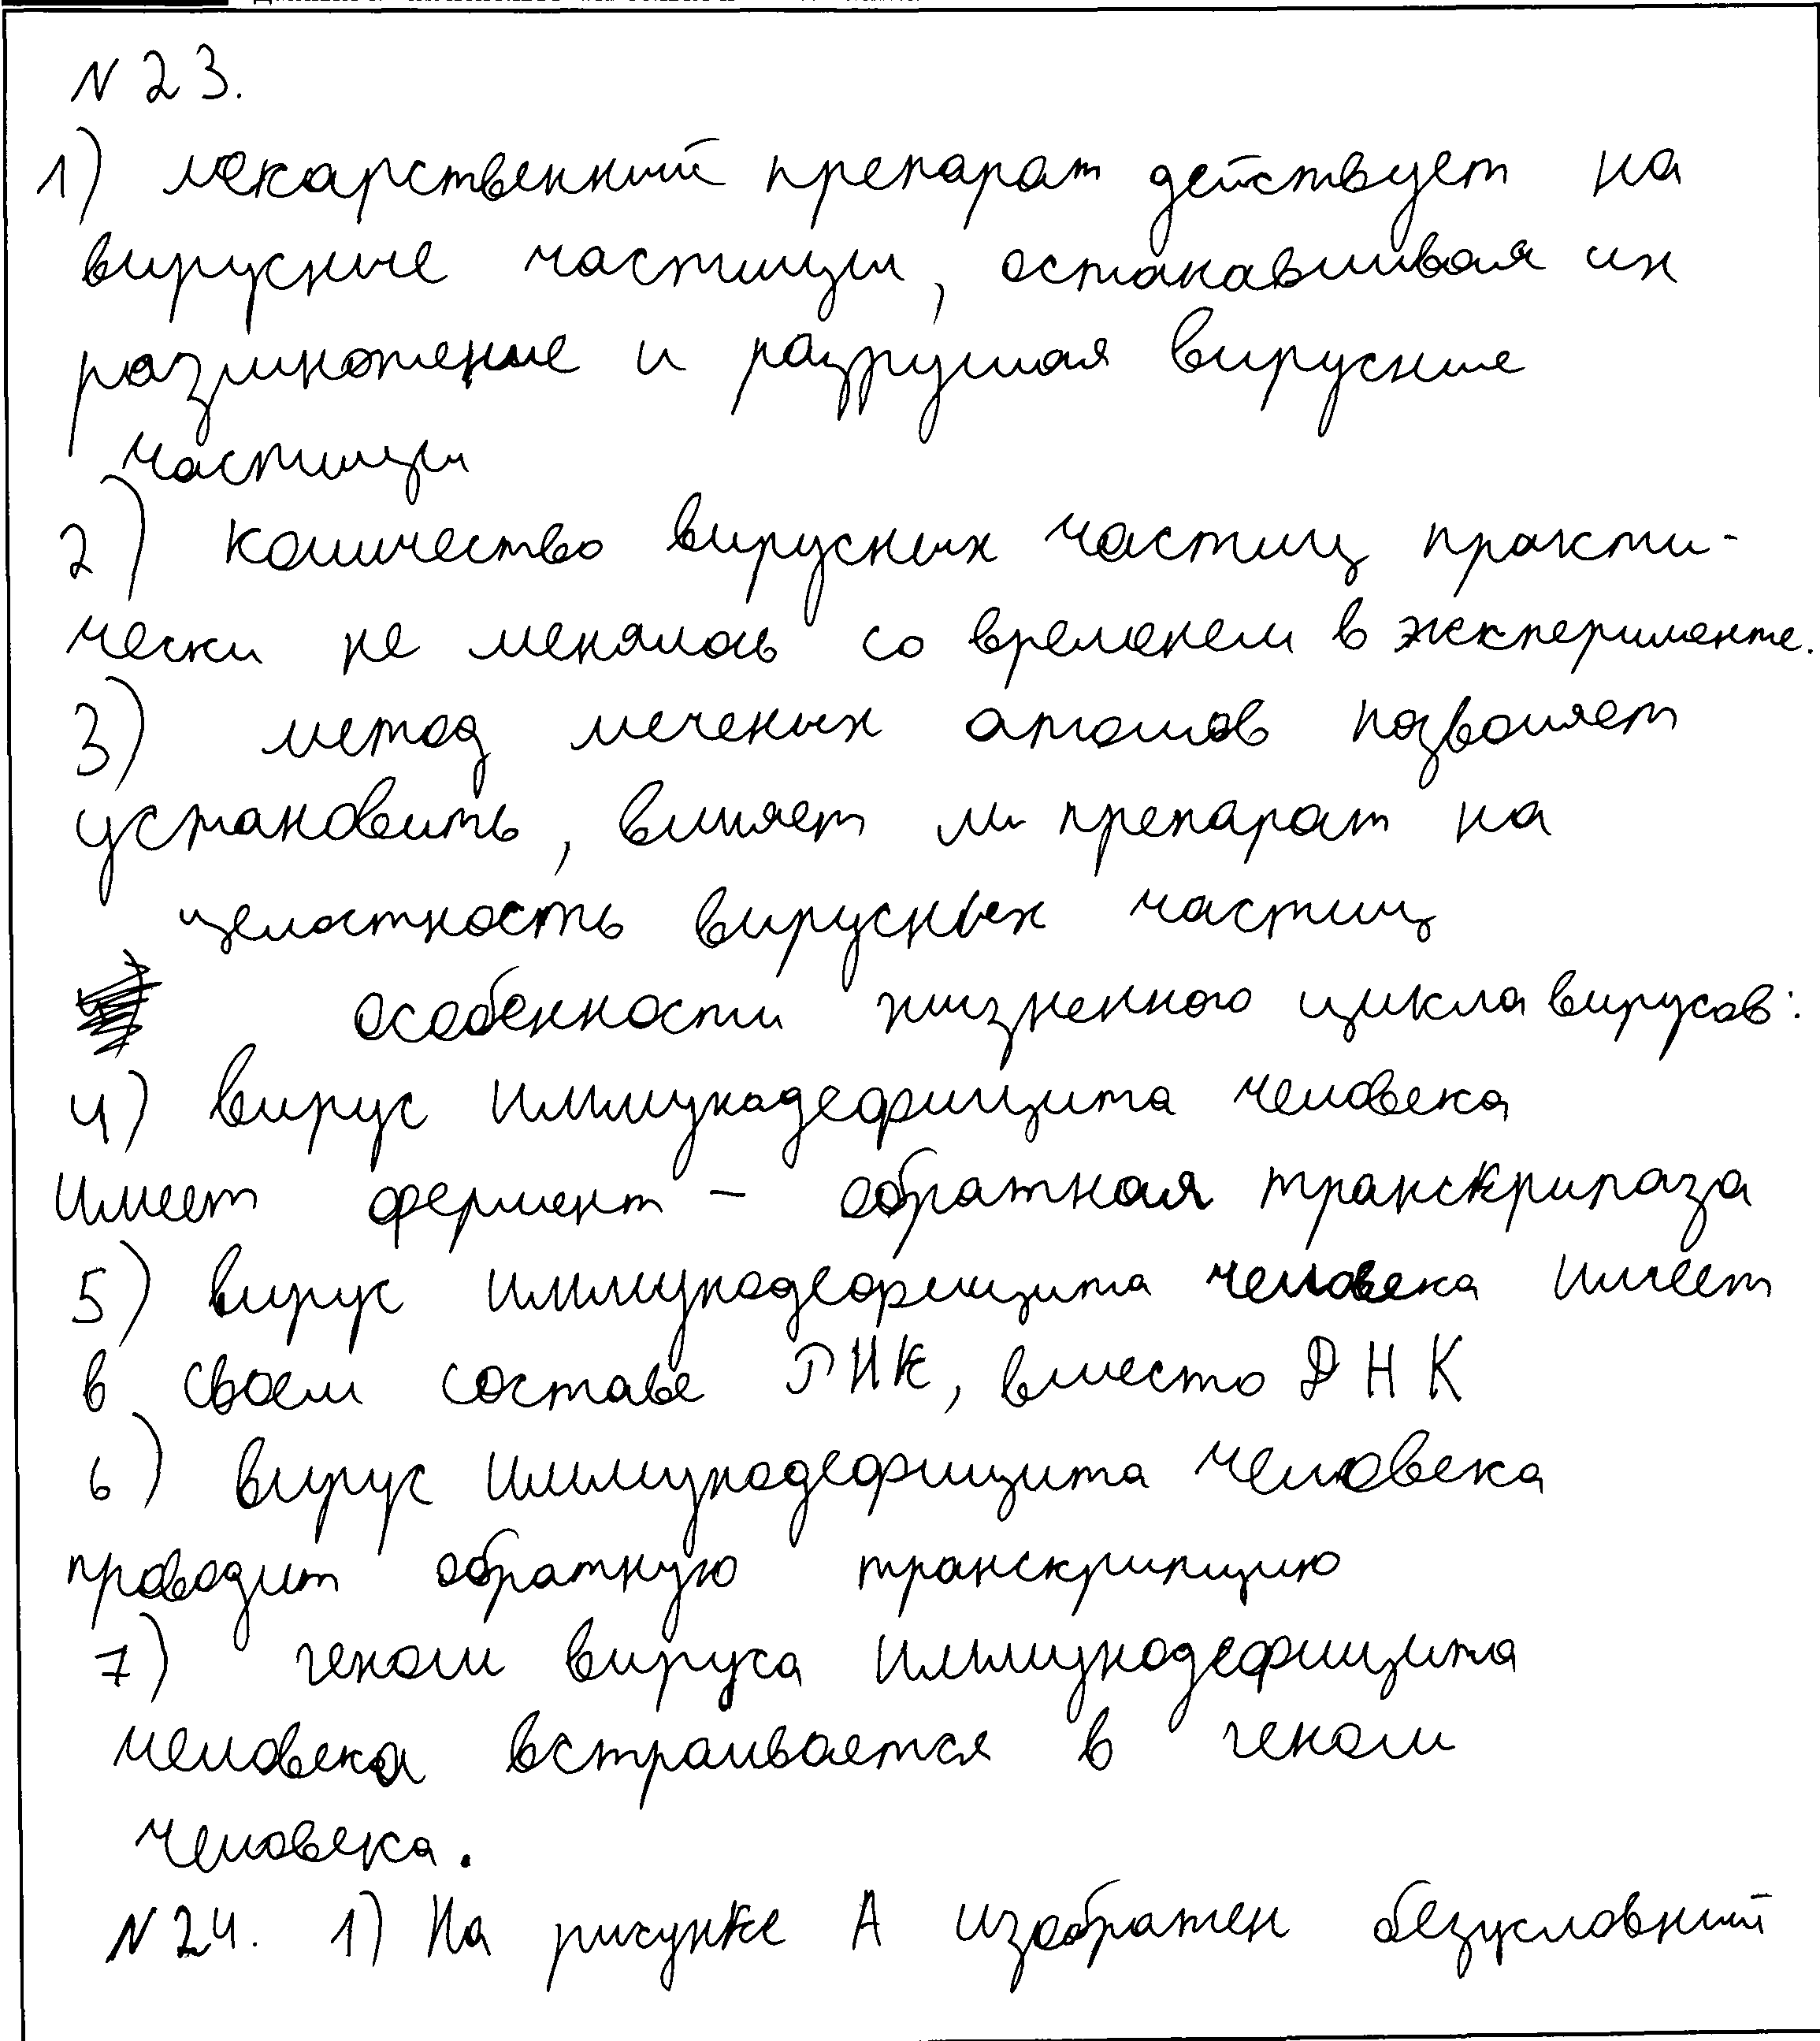 N 23.
1) лекарственный препарат действует на
вирусные частицы, останавливая их
размножение и разрушая вирусные
частицы
2) количество вирусных частиц практи-
чески не менялось со временем в эксперименте.
3) метод меченых атомов позволяет
установить, влияет ли препарат на
целостность вирусных частиц
особенности жизненного цикла вирусов:
4) вирус иммунодефицита человека
имеет фермент - обратная транскрипаза
5) вирус иммунодефицита человека имеет
в своем составе РНК, вместо ДНК
6) вирус иммунодефицита человека
проводит обратную транскрипцию
7) геном вируса иммунодефицита
человека встраивается в геном
человека.
N 24. 1) На рисунке А изображен безусловный